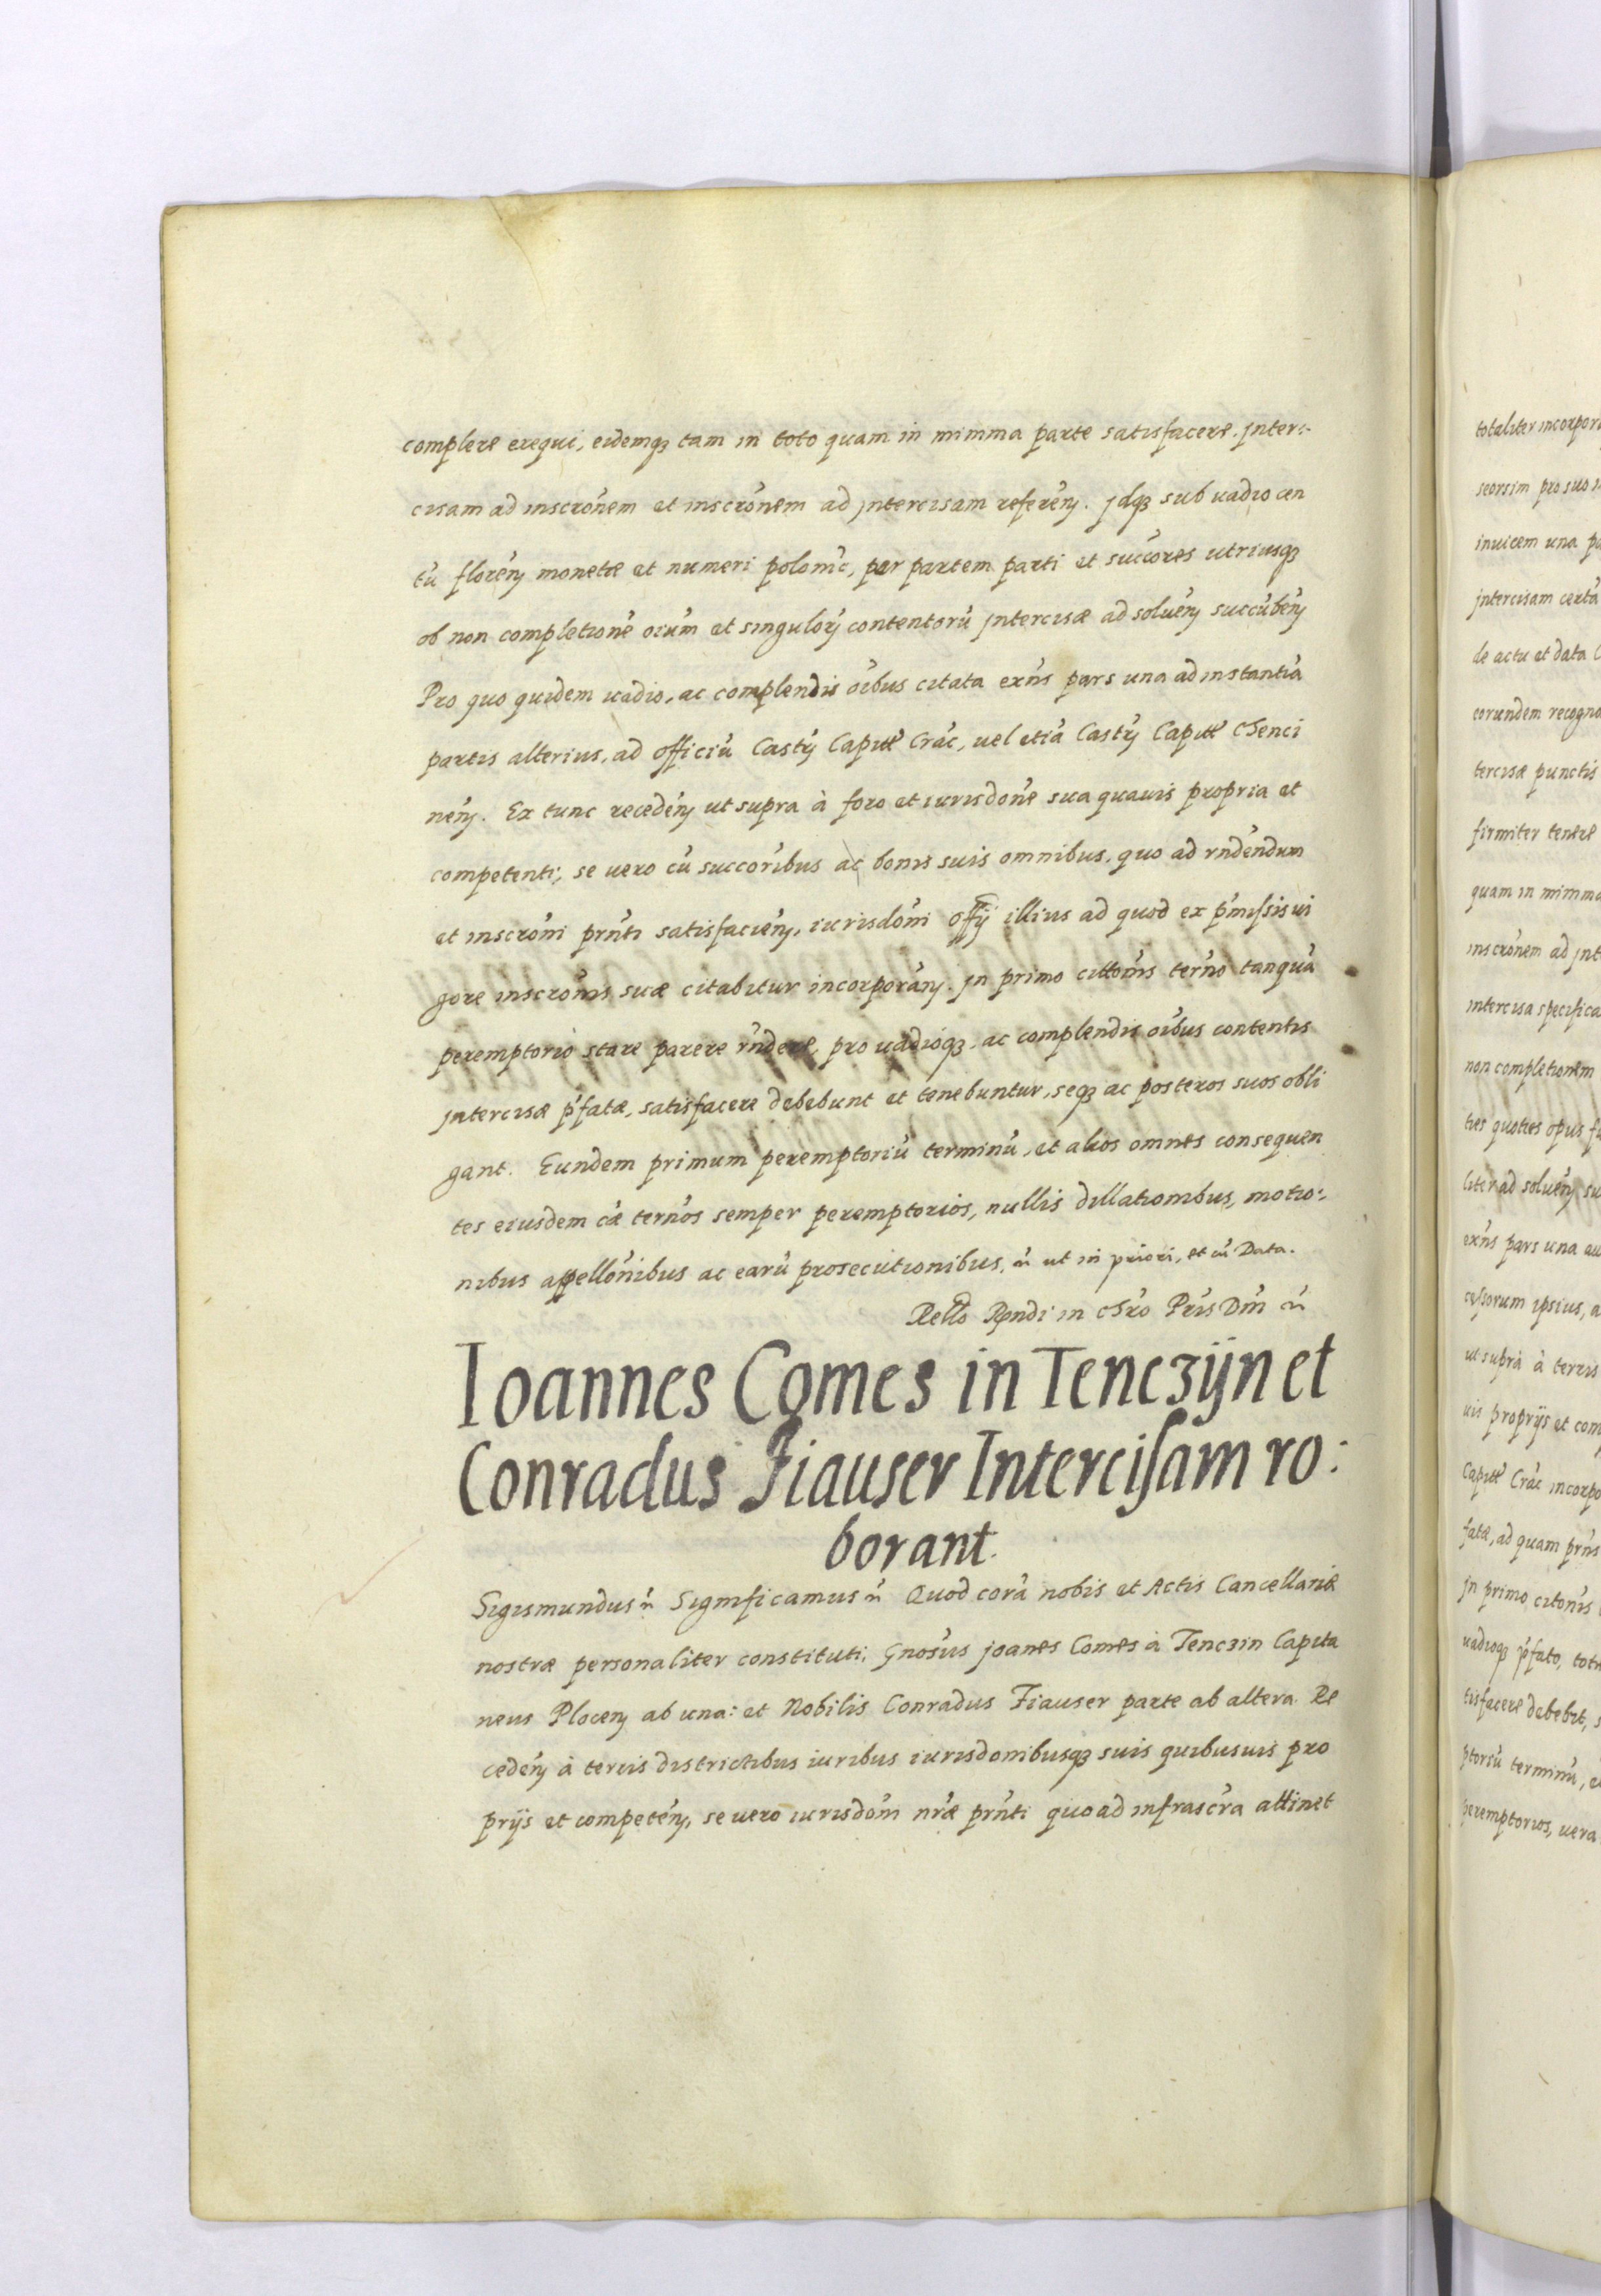 complere exequi, eidemqꝫ tam in toto quam in minima parte satisfacere. Inter:-
cisam ad inscrōnem et inscrōnem ad intercisam referēn. Idqꝫ sub uadio cen
tū florēn monetæ et numeri polonic̄, per partem parti et succōres utriusqꝫ
ob non completionē oīum et singulorū contentorū intercisæ ad soluēn succūbēn
Pro quo quidem uadio, ac complendis oībus citata exn̄s pars una ad instantiā
partis alterius, ad officiū Castrē Capitł Crac̄, uel etiā Castrē Capitł Chenci
nēn. Ex tunc recedēn ut supra à foro et iurisdōne sua quauis propria et
competenti, se uero cū succorībus ac bonis suis omnibus, quo ad rn̄dendum
et inscrōni prn̄ti satisfaciēn, iurisdōni offij illius ad quod ex p̄missis ui
gore inscrōnis suæ citabitur incorporān. In primo cittōnis terno tanquā
peremptorio stare parere rn̄dere, pro uadioqꝫ, ac complendis oībus contentis
intercisæ p̄fatæ, satisfacere debebunt et tenebuntur, seqꝫ ac posteros suos obli
gant. Eundem primum peremptoriū terminū, et alios omnes consequen
tes eiusdem cǣ ternōs semper peremptorios, nullis dillationibus, motio:-
nibus appellōnibus ac earū prosecutionibus, ut in priori, et Data.
Rello Rn̄di in chrō Prīs Dn̄i
Ioannes Comes in Tenczijn et
Conradus Fiauser Intercisam ro:
borant.
Sigismundus Significamus Quod corā nobis et Actis Cancellariæ
nostræ personaliter constituti, Gnosūs Joanes Comes à Tenczin Capita
neus Plocen ab una: et Nobilis Conradus Fiauser parte ab altera. Re
cedēn à terris districtibus iuribus iurisdonibusqꝫ suis quibusuis pro
prijs et competēn, se uero iurisdōni nrǣ prn̄ti quo ad infrascrā attinet
totaliter incorpor
seorsim pro suo
inuicem una pa
intercisam certā
de actu et data
eorundem recogno
tercisæ punctis
firmiter tenere
quam in minima
inscrōnem ad int
intercisa specifica
non completionem
ties quoties opus fu
liter ad soluēn su
exn̄s pars una au
cessorum ipsius, a
ut supra à terris
uis proprijs et com
Capitł Crac̄ incorpo
fatæ, ad quam prn̄s
In primo citonīs
uadioqꝫ p̄fato, tot
tisfacere debebit, s
ptoriū terminū, e
peremptorios, uera